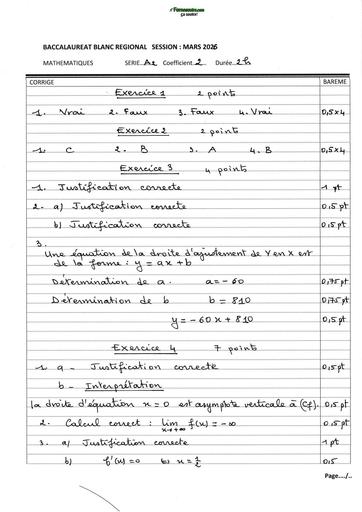 Fomesoutra.com
ça soutra !
BACCALAUREAT BLANC REGIONAL SESSION : MARS 2026
MATHEMATIQUES SERIE A2 Coefficient 2 Durée 2h
CORRIGE BAREME
Exercice 1 2 points
1. Vrai 2. Faux 3. Faux 4. Vrai 0,5x4
Exercice 2 2 points
1. C 2. B 3. A 4. B 0,5x4
Exercice 3 4 points
1. Justification correcte 1 pt
2. a) Justification correcte 0,5 pt
b) Justification correcte 0,5 pt
3.
Une équation de la droite d'ajustement de Y en X est
de la forme : y = ax + b
Détermination de a. a = - 60 0,75 pt
Détermination de b b = 810 0,75 pt
y = - 60 x + 810 0,5 pt
Exercice 4 7 points
1 a - Justification correcte 0,5 pt
b - Interprétation
la droite d'équation x = 0 est asymptote verticale à (Cf). 0,5 pt
2. Calcul correct : lim f(x) = -∞ 0,5 pt
x→+∞
3. a) Justification correcte 1 pt
b) f'(x) = 0 0,5
Page..../..